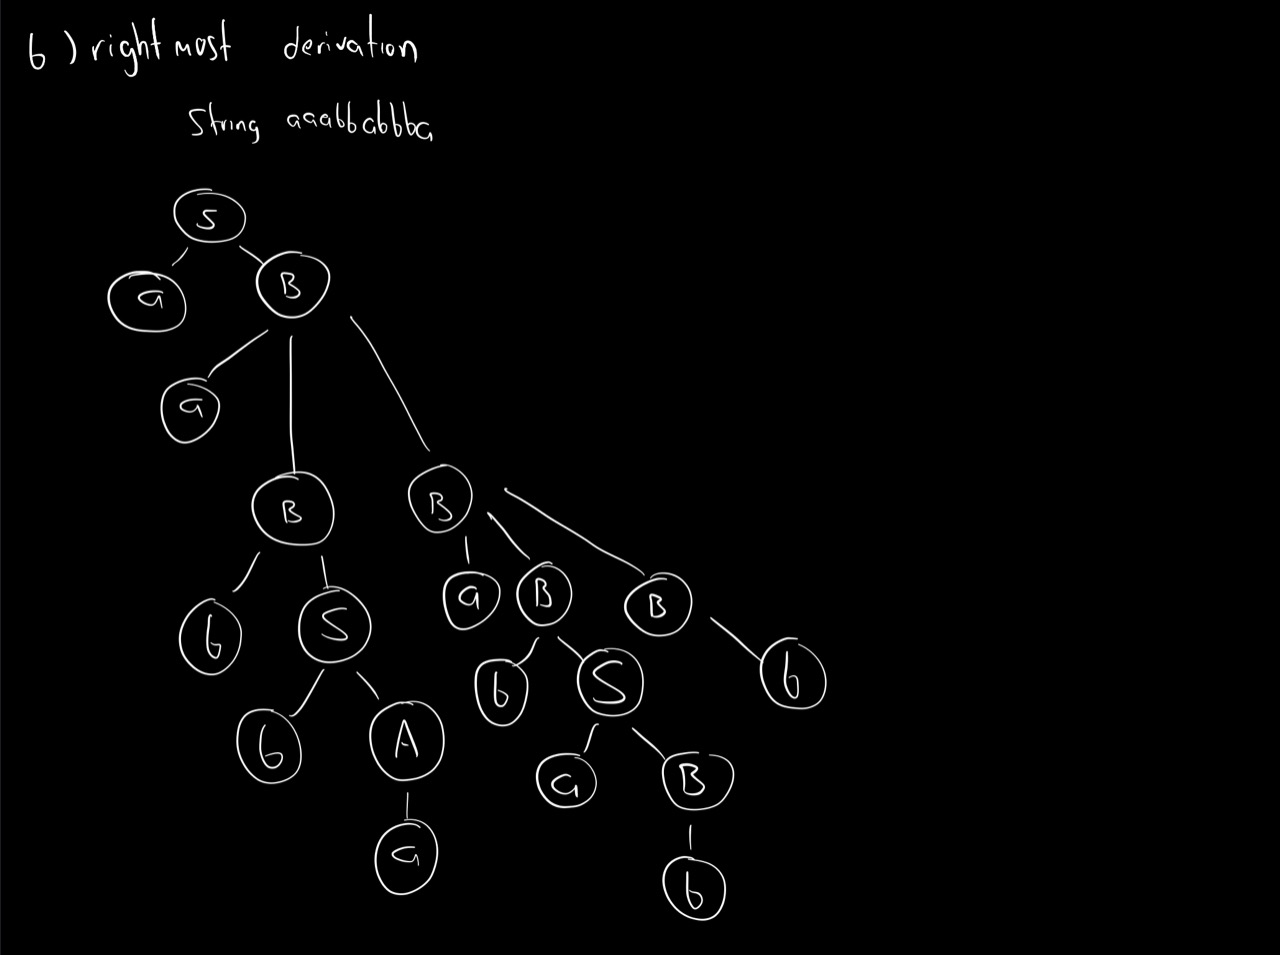 b) rightmost derivation
String aaabbabbba
S
a B
a
B B
a B B
b S b
b S
b A
a B
a
b